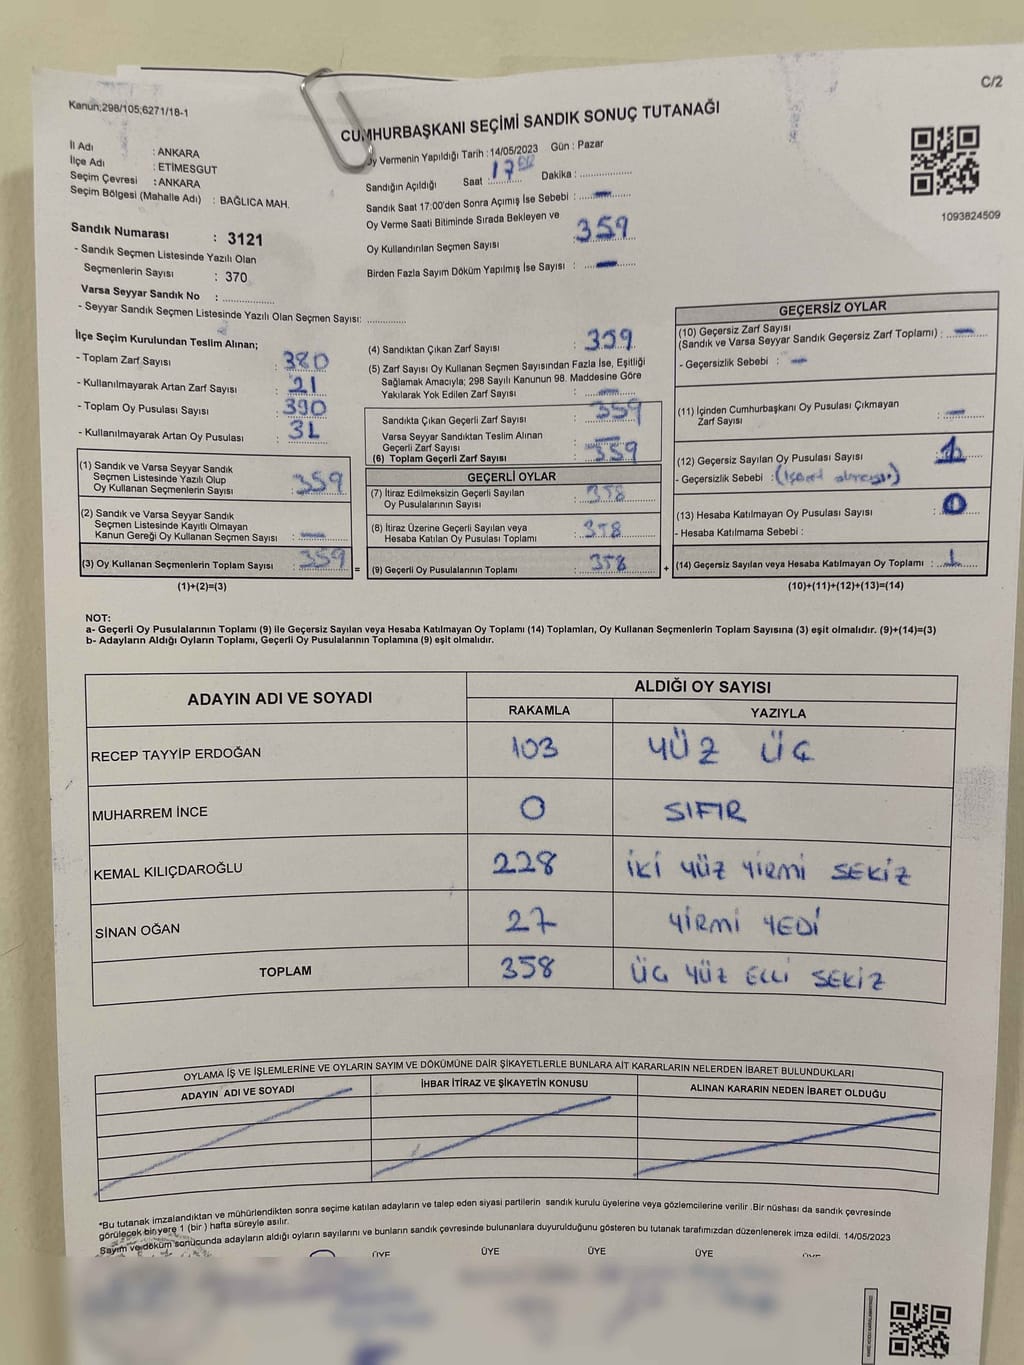 C/2
Kanun;298/105;6271/18-1
CUMHURBAŞKANI SEÇİMİ SANDIK SONUÇ TUTANAĞI
İl Adı : ANKARA
İlçe Adı : ETİMESGUT
Seçim Çevresi : ANKARA
Seçim Bölgesi (Mahalle Adı) : BAĞLICA MAH.
Oy Vermenin Yapıldığı Tarih : 14/05/2023 Gün : Pazar
Sandığın Açıldığı Saat : 17 00 Dakika :
Sandık Saat 17:00'den Sonra Açımış İse Sebebi : —
Oy Verme Saati Bitiminde Sırada Bekleyen ve
Oy Kullandırılan Seçmen Sayısı : 359
Birden Fazla Sayım Döküm Yapılmış İse Sayısı : —
1093824509
Sandık Numarası : 3121
- Sandık Seçmen Listesinde Yazılı Olan
Seçmenlerin Sayısı : 370
Varsa Seyyar Sandık No :
- Seyyar Sandık Seçmen Listesinde Yazılı Olan Seçmen Sayısı:
İlçe Seçim Kurulundan Teslim Alınan;
- Toplam Zarf Sayısı : 380
- Kullanılmayarak Artan Zarf Sayısı : 21
- Toplam Oy Pusulası Sayısı : 390
- Kullanılmayarak Artan Oy Pusulası : 31
(1) Sandık ve Varsa Seyyar Sandık
Seçmen Listesinde Yazılı Olup
Oy Kullanan Seçmenlerin Sayısı : 359
(2) Sandık ve Varsa Seyyar Sandık
Seçmen Listesinde Kayıtlı Olmayan
Kanun Gereği Oy Kullanan Seçmen Sayısı : —
(3) Oy Kullanan Seçmenlerin Toplam Sayısı : 359
(1)+(2)=(3)
(4) Sandıktan Çıkan Zarf Sayısı : 359
(5) Zarf Sayısı Oy Kullanan Seçmen Sayısından Fazla İse, Eşitliği
Sağlamak Amacıyla; 298 Sayılı Kanunun 98. Maddesine Göre
Yakılarak Yok Edilen Zarf Sayısı : —
Sandıkta Çıkan Geçerli Zarf Sayısı : 359
Varsa Seyyar Sandıktan Teslim Alınan
Geçerli Zarf Sayısı : —
(6) Toplam Geçerli Zarf Sayısı : 359
GEÇERLİ OYLAR
(7) İtiraz Edilmeksizin Geçerli Sayılan
Oy Pusulalarının Sayısı : 358
(8) İtiraz Üzerine Geçerli Sayılan veya
Hesaba Katılan Oy Pusulası Toplamı : 358
= (9) Geçerli Oy Pusulalarının Toplamı : 358 +
GEÇERSİZ OYLAR
(10) Geçersiz Zarf Sayısı
(Sandık ve Varsa Seyyar Sandık Geçersiz Zarf Toplamı) : —
- Geçersizlik Sebebi : —
(11) İçinden Cumhurbaşkanı Oy Pusulası Çıkmayan
Zarf Sayısı : —
(12) Geçersiz Sayılan Oy Pusulası Sayısı : 1
- Geçersizlik Sebebi :
(13) Hesaba Katılmayan Oy Pusulası Sayısı : 0
- Hesaba Katılmama Sebebi :
(14) Geçersiz Sayılan veya Hesaba Katılmayan Oy Toplamı : 1
(10)+(11)+(12)+(13)=(14)
NOT:
a- Geçerli Oy Pusulalarının Toplamı (9) ile Geçersiz Sayılan veya Hesaba Katılmayan Oy Toplamı (14) Toplamları, Oy Kullanan Seçmenlerin Toplam Sayısına (3) eşit olmalıdır. (9)+(14)=(3)
b- Adayların Aldığı Oyların Toplamı, Geçerli Oy Pusulalarının Toplamına (9) eşit olmalıdır.
ADAYIN ADI VE SOYADI ALDIĞI OY SAYISI
RAKAMLA YAZIYLA
RECEP TAYYİP ERDOĞAN 103 YÜZ ÜÇ
MUHARREM İNCE 0 SIFIR
KEMAL KILIÇDAROĞLU 228 İKİ YÜZ YİRMİ SEKİZ
SİNAN OĞAN 27 YİRMİ YEDİ
TOPLAM 358 ÜÇ YÜZ ELLİ SEKİZ
OYLAMA İŞ VE İŞLEMLERİNE VE OYLARIN SAYIM VE DÖKÜMÜNE DAİR ŞİKAYETLERLE BUNLARA AİT KARARLARIN NELERDEN İBARET BULUNDUKLARI
ADAYIN ADI VE SOYADI İHBAR İTİRAZ VE ŞİKAYETİN KONUSU ALINAN KARARIN NEDEN İBARET OLDUĞU
*Bu tutanak imzalandıktan ve mühürlendikten sonra seçime katılan adayların ve talep eden siyasi partilerin sandık kurulu üyelerine veya gözlemcilerine verilir .Bir nüshası da sandık çevresinde
görülecek bir yere 1 (bir ) hafta süreyle asılır.
Sayım ve döküm sonucunda adayların aldığı oyların sayılarını ve bunların sandık çevresinde bulunanlara duyurulduğunu gösteren bu tutanak tarafımızdan düzenlenerek imza edildi. 14/05/2023
ÜYE ÜYE ÜYE ÜYE ÜYE